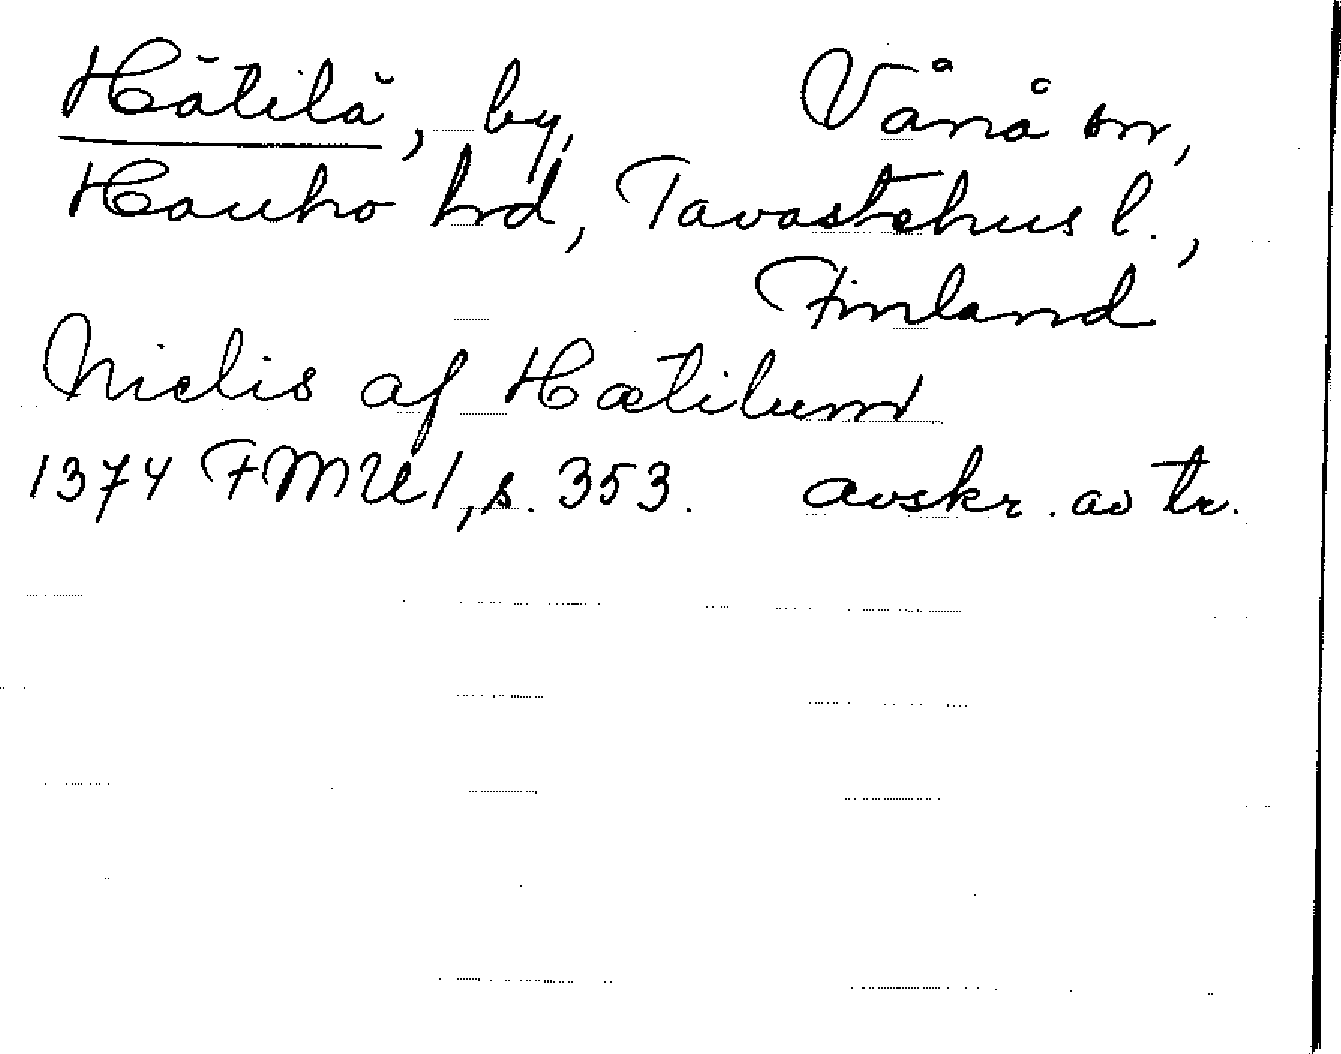 Hätilä, by, Vånå sn,
Hauho hrd, Tavastehus l.,
Finland
Niclis af Hætilum
1374 FMU 1, s. 353. avskr. av tr.